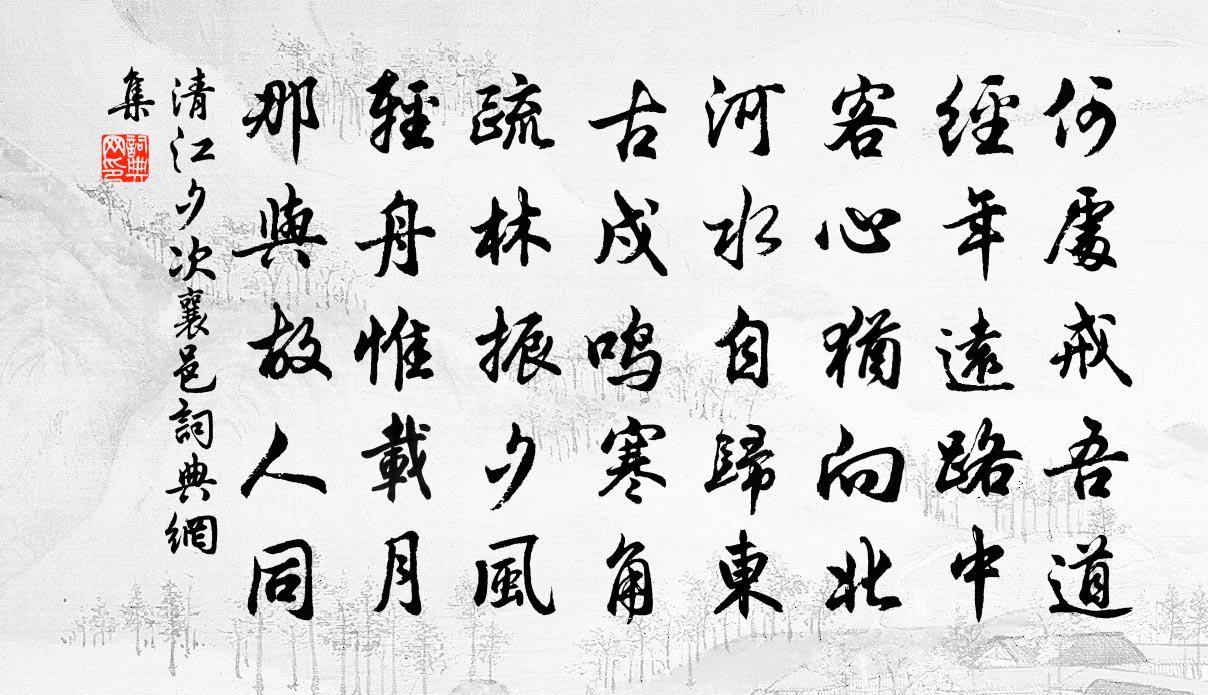 何處戒吾道
經年遠路中
客心猶向北
河水自歸東
古戍鳴寒角
疏林振夕風
輕舟惟載月
那與故人同
清江夕次襄邑詞典網
集
詞典网印